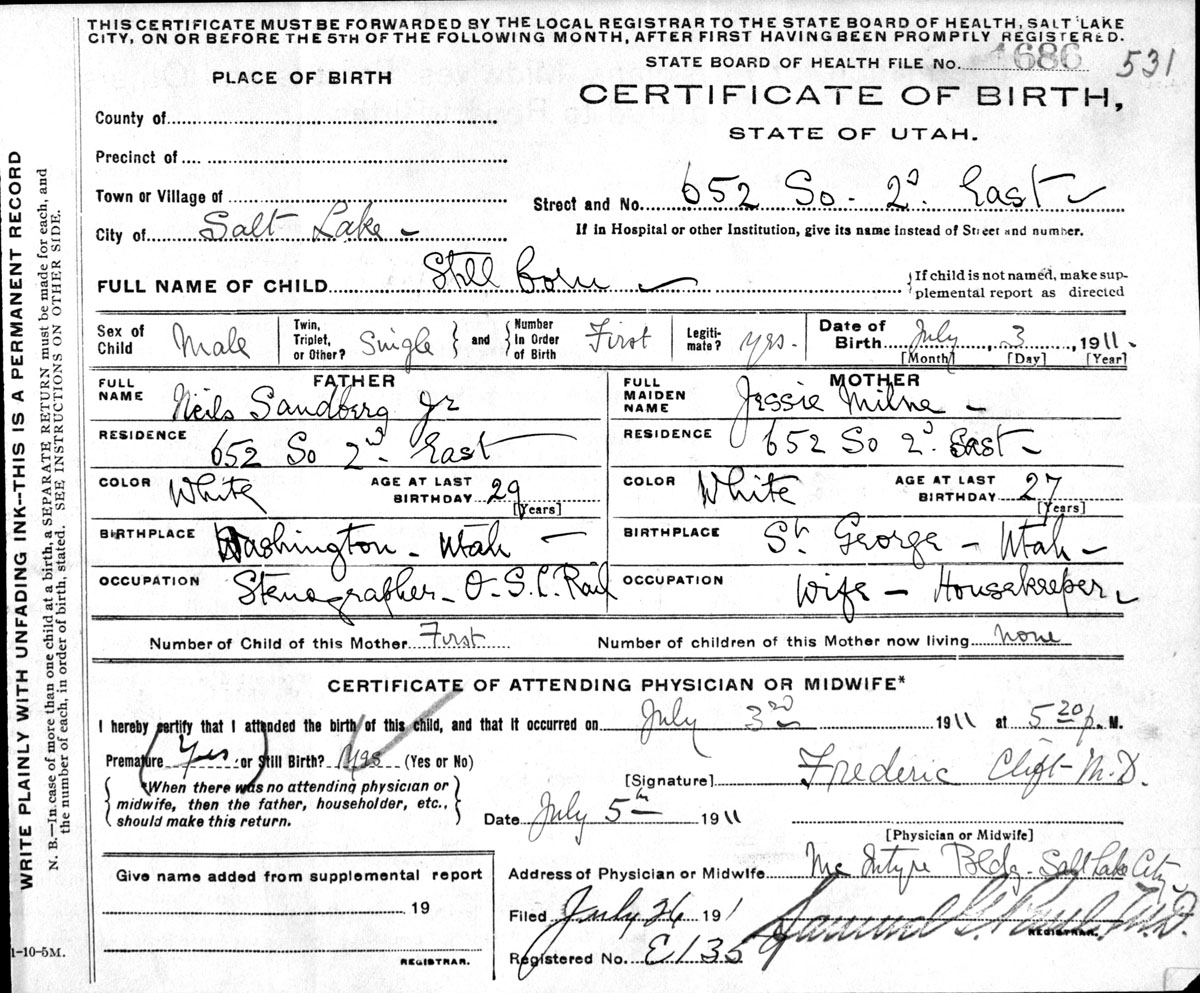 THIS CERTIFICATE MUST BE FORWARDED BY THE LOCAL REGISTRAR TO THE STATE BOARD OF HEALTH, SALT LAKE
CITY, ON OR BEFORE THE 5TH OF THE FOLLOWING MONTH, AFTER FIRST HAVING BEEN PROMPTLY REGISTERED.
STATE BOARD OF HEALTH FILE No. 1686 531
PLACE OF BIRTH
CERTIFICATE OF BIRTH,
STATE OF UTAH.
County of
Precinct of
Town or Village of
Street and No. 652 So - 2d. East
City of Salt Lake
If in Hospital or other Institution, give its name instead of Street and number.
FULL NAME OF CHILD Still born
If child is not named, make sup-
plemental report as directed
Sex of Child Male
Twin, Triplet, or Other? Single
and Number In Order of Birth First
Legiti-mate? yes.
Date of Birth July 3, 1911
[Month] [Day] [Year]
FATHER
FULL NAME Neils Sandberg Jr
MOTHER
FULL MAIDEN NAME Jessie Milne
RESIDENCE 652 So 2nd. East
RESIDENCE 652 So 2d. East
COLOR White AGE AT LAST BIRTHDAY 29 [Years]
COLOR White AGE AT LAST BIRTHDAY 27 [Years]
BIRTHPLACE Washington - Utah
BIRTHPLACE St. George - Utah
OCCUPATION Stenographer - O. S. L. Rail
OCCUPATION Wife - Housekeeper
Number of Child of this Mother First
Number of children of this Mother now living none
CERTIFICATE OF ATTENDING PHYSICIAN OR MIDWIFE*
I hereby certify that I attended the birth of this child, and that it occurred on July 3rd 1911 at 5 20 p. M.
Premature Yes or Still Birth? Yes (Yes or No)
[Signature] Frederic Clift M.D.
*When there was no attending physician or
midwife, then the father, householder, etc.,
should make this return.
Date July 5th 1911
[Physician or Midwife]
Give name added from supplemental report
19
REGISTRAR.
Address of Physician or Midwife Mc Intyre Bldg - Salt Lake City
Filed July 26 191
Samuel G. Paul M.D.
REGISTRAR.
Registered No. E135
1-10-5M.
WRITE PLAINLY WITH UNFADING INK--THIS IS A PERMANENT RECORD
N. B.—In case of more than one child at a birth, a SEPARATE RETURN must be made for each, and
the number of each, in order of birth, stated. SEE INSTRUCTIONS ON OTHER SIDE.